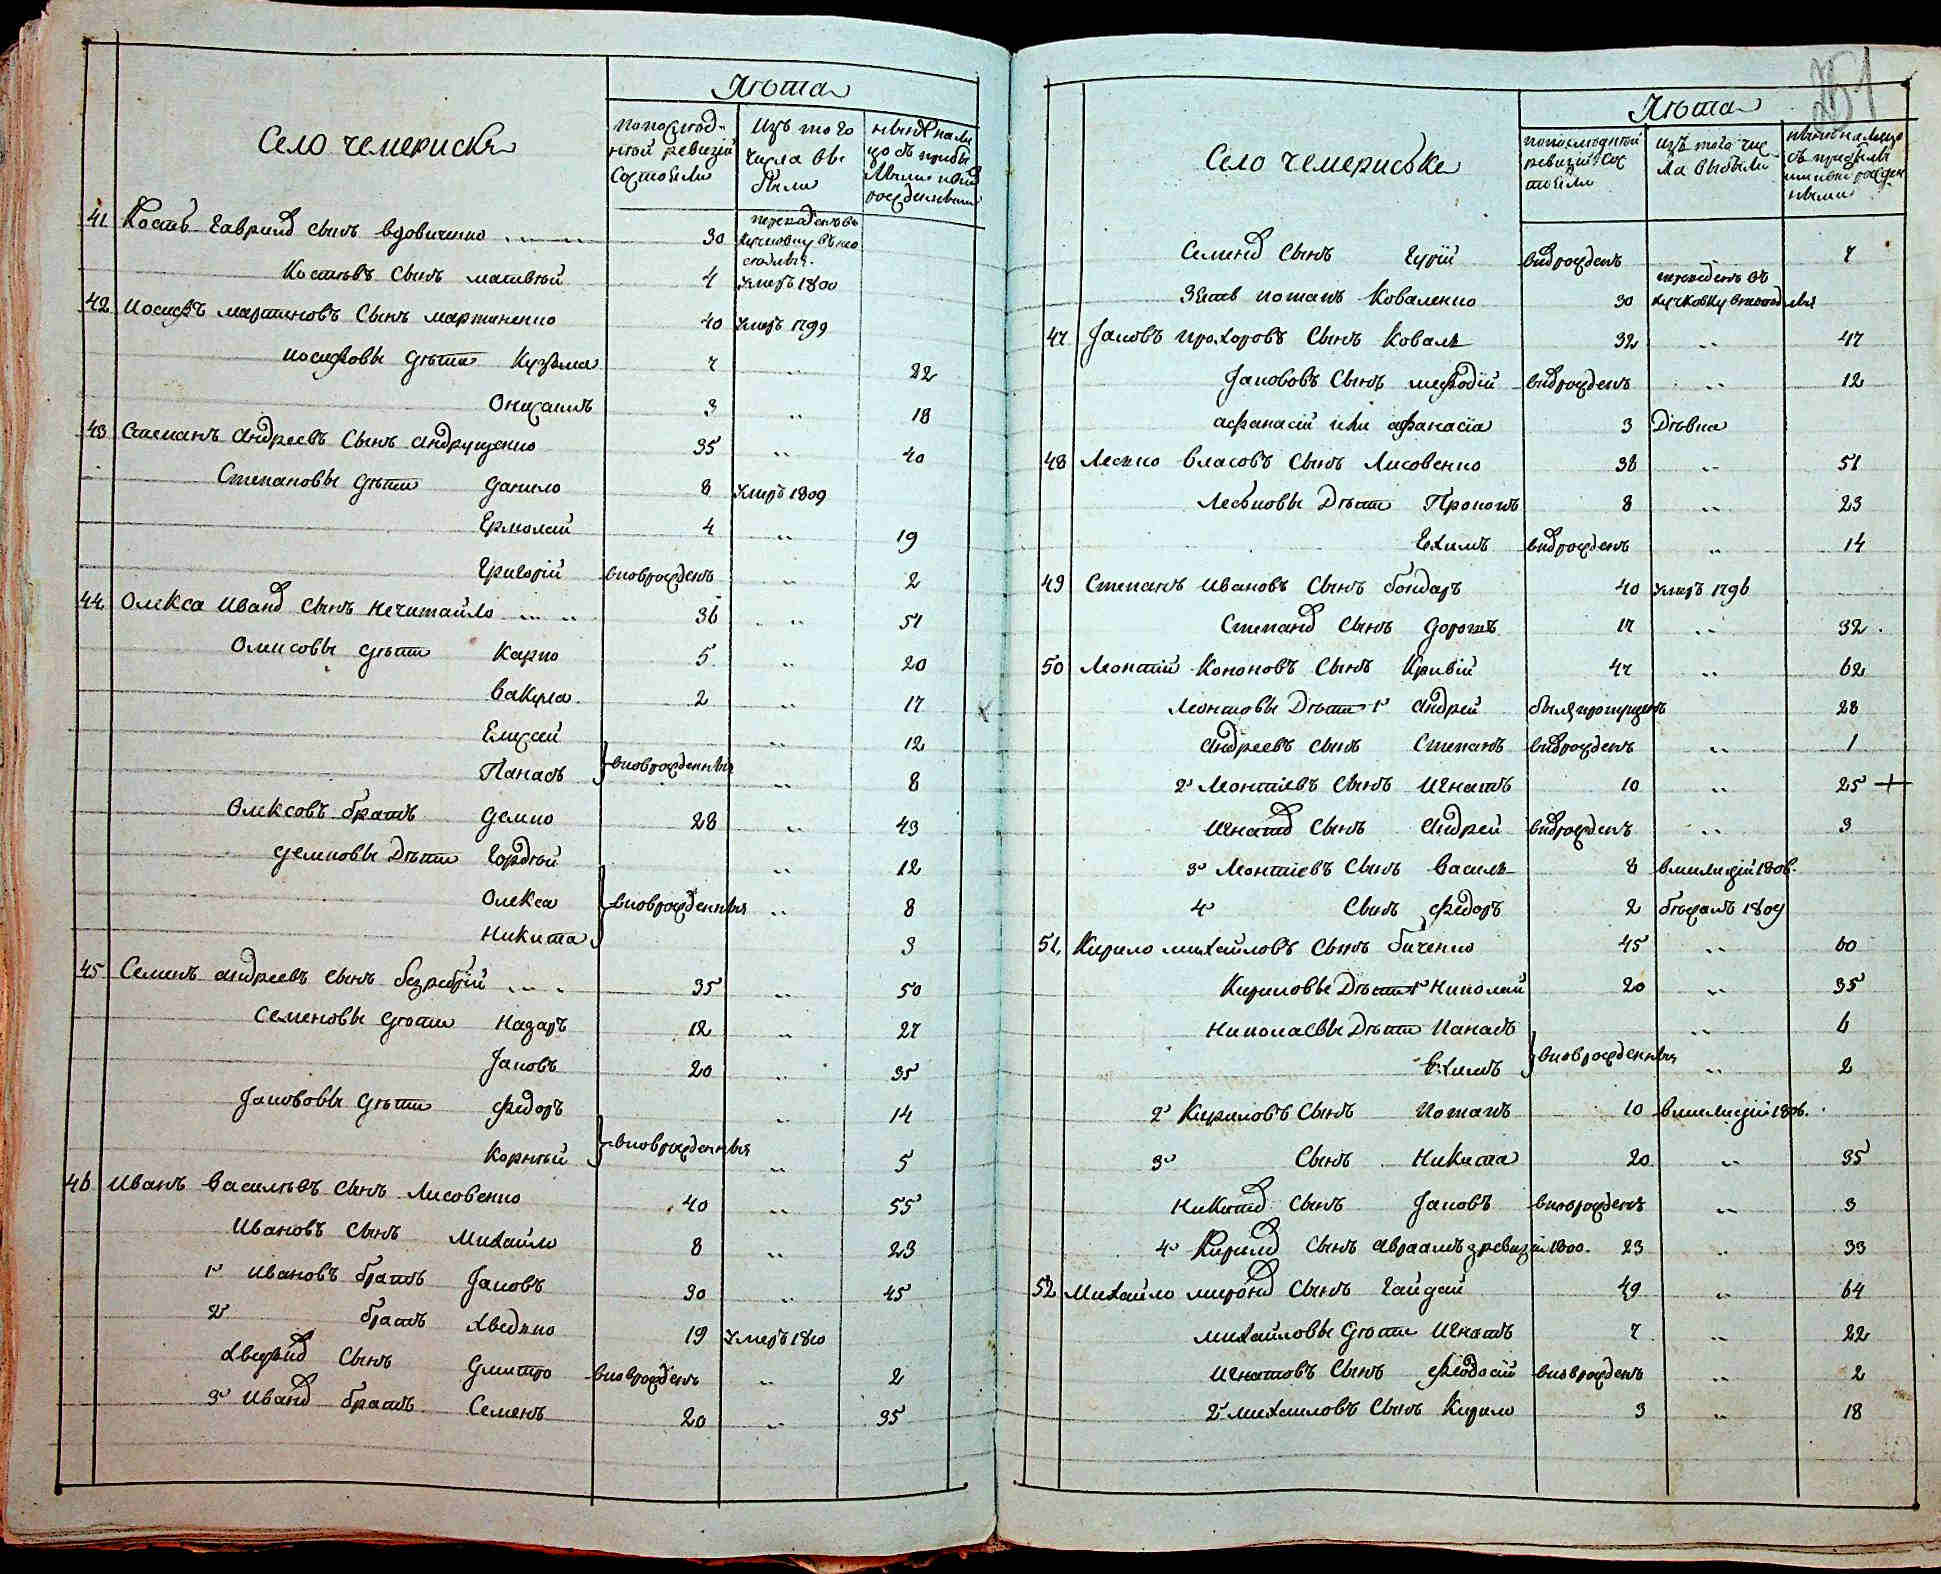 Лѣта
Село Чемериски
по последней ревизіи состояли
Изъ того числа выбыли
нынѣ на лицо съ прибылыми и новорожденными
41 Костъ Гаврилов сынъ вдовиченко 30 переведенъ в Кучковку въ посполитыя.
Костевъ сынъ матвѣй 4 умеръ 1800
42 Иосифъ мартиновъ Сынъ мартиненко 40 умеръ 1799
иосифовы дѣти Кузьма 7 " 22
Онисимъ 3 " 18
43 Степанъ Андреевъ Сынъ андрущенко 35 " 40
Степановы дѣти данило 8 умеръ 1809
Ермолай 4 " 19
Григорій вновьрожденъ " 2
44 Олекса Иванов Сынъ нечитайло 36 " 51
Олексовы дѣти Карпо 5 " 20
вакула 2 " 17
Елисей " 12
Панасъ вноврожденныя " 8
Олексовъ братъ демко 28 " 43
демковы Дѣти Гордѣй " 12
Олекса вноврожденныя " 8
Никита 3
45 Семенъ андреевъ сынъ безребрій 35 " 50
Семеновы дѣти Назаръ 12 " 27
Яковъ 20 " 35
Якововы дѣти федоръ " 14
Корнѣй вноврожденныя " 5
46 Иванъ василѣвъ сынъ Лисовенко 40 " 55
Ивановъ Сынъ Михайло 8 " 23
1й Ивановъ братъ Яковъ 30 " 45
2й братъ хведько 19 умеръ 1810
хведков Сынъ дмитро вноврожденъ " 2
3й Иванов братъ Семенъ 20 " 35
251
Лѣта
Село Чемериське
по последней ревизіи состояли
изъ того числа выбыли
нынѣ на лицо съ прибылыми и новорожденными
Семенов Сынъ Гурій вновьрожденъ 7
Зять потапъ Коваленко 30 переведенъ въ кучковку в посполитыя
47 Яковъ прохоровъ Сынъ Коваль 32 " 47
Якововъ Сынъ мефодій вновьрожденъ " 12
афанасій или афанасія 3 Дѣвка
48 Лесько власовъ Сынъ Лисовенко 36 " 51
Леськовы Дѣти Прокопъ 8 " 23
Ехимъ вновьрожденъ " 14
49 Степанъ Ивановъ Сынъ бондаръ 40 умеръ 1796
Степанов Сынъ дорошъ 17 " 32
50 Леонтій Кононовъ Сынъ Кривій 47 " 62
Леонтовы Дѣти 1й Андрей былъ пропущенъ 28
Андреевъ сынъ Степанъ вновьрожденъ " 1
2й Леонтіевъ Сынъ Игнатъ 10 " 25
Игнатов Сынъ Андрей вновьрожденъ 3
3й Леонтіевъ Сынъ Василь 8 в милиціи 1806.
4й Сынъ федоръ 2 бѣжалъ 1809
51 Кирило михайловъ Сынъ биченко 45 " 60
Кириловы Дѣти 1й Николай 20 " 35
Николаевы Дѣти Панасъ " 6
Ехимъ вноврожденныя " 2
2й Кириловъ Сынъ Потапъ 10 в милиціи 1806.
3й Сынъ Никита 20 " 35
Никитов Сынъ Яковъ вноврожденъ " 3
4й Кирилов Сынъ Авраамъ з ревизіи 1800. 23 " 33
52 Михайло миронов Сынъ Гайдай 49 " 64
михайловы дѣти Игнатъ 7 " 22
Игнатовъ Сынъ феодосій вноврожденъ " 2
2й михаиловъ Сынъ Кирило 3 " 18